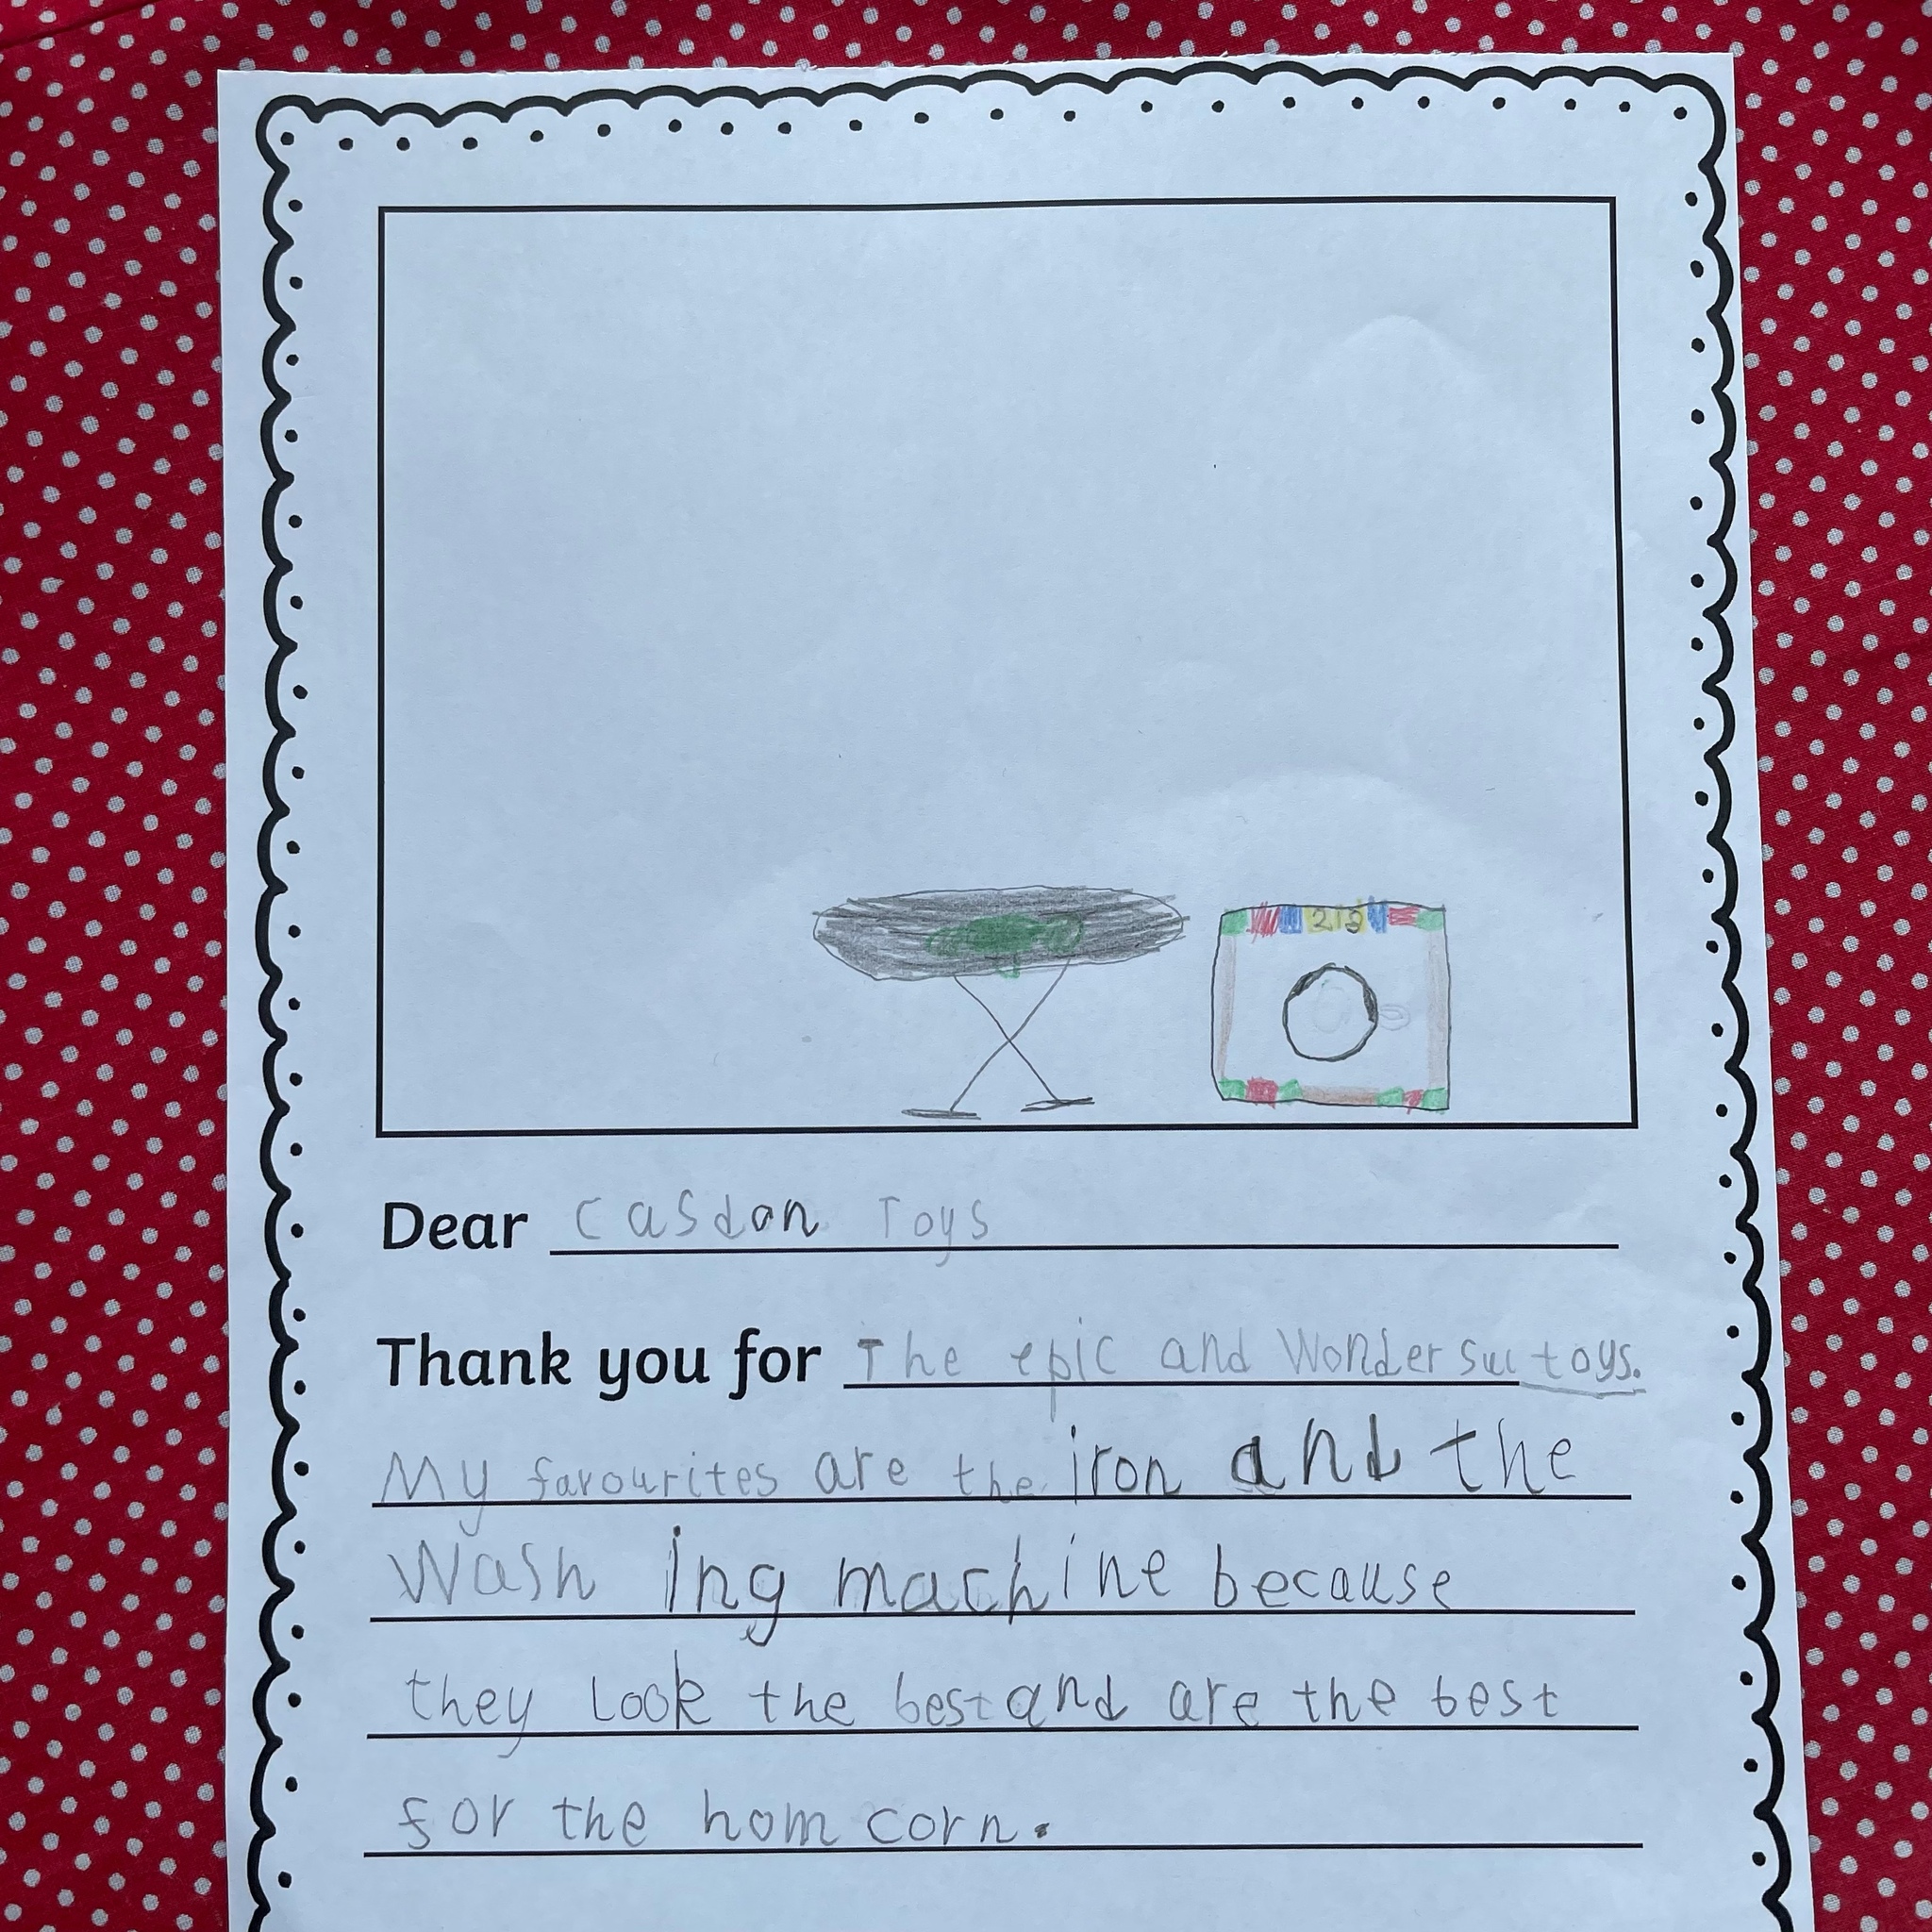 219
Dear Casdon Toys
Thank you for The epic and Wondersul toys.
My favourites are the iron and the
Wash ing machine because
they Look the best and are the best
for the hom corn.